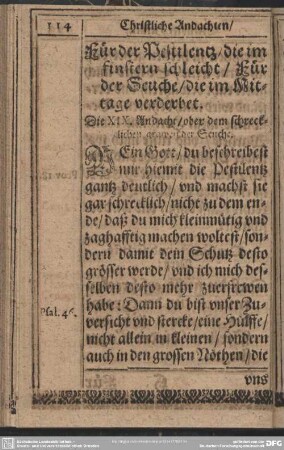 114
Christliche Andachten/
Für der Pestilentz/die im
finstern schleicht/ Für
der Seuche/die im Mit-
tage verderbet.
Die XIX. Andacht/ober dem schreck-
der Seuche.
MEin Gott/du beschreibest
mir hiemit die Pestilentz
gantz deutlich/ vnd machst sie
gar schrecklich/nicht zu dem en-
de/daß du mich kleinmütig vnd
zaghafftig machen woltest/son-
dern damit dein Schutz desto
grösser werde/vnd ich mich des-
selben desto mehr zuerfrewen
habe: Dann du bist vnser Zu-
Psal. 46.
versicht vnd stercke/eine Hülffe/
nicht allein in kleinen/ sondern
auch in den grossen Nöthen/die
vns
DFG